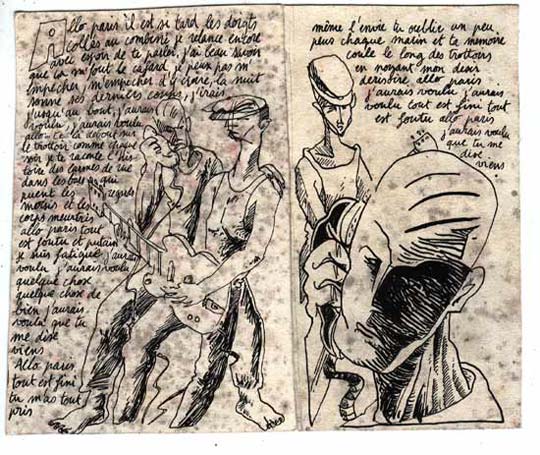 Allo paris il est si tard les doigts
collés au combiné je relance encore
avec espoir de te parler, j'ai beau savoir
que ça m'fout le cafard je peux pas m'
empêcher, m'empêcher d'y croire, la nuit
sonne ses derniers coups, j'irais
jusqu'au bout, j'aurais
voulu, j'aurais voulu
allo t'es là debout sur
le trottoir comme chaque
soir je te raconte l'his
toire des gammes de rue
dans les bars qui
puent les
mots et les
corps meurtris
allo paris tout
est foutu et putain
je suis fatigué j'aurais
voulu j'aurais voulu
quelque chose
quelque chose de
bien j'aurais
voulu que tu
me dise
viens
Allo paris
tout est fini
tu m'as tout
pris
même l'envie t'oublier un peu
peu chaque matin et ta mémoire
coule le long des trottoirs
en noyant mon désir
dérisoire allo paris
j'aurais voulu j'aurais
voulu tout est fini tout
est foutu allo paris
j'aurais voulu
que tu me
dise
viens